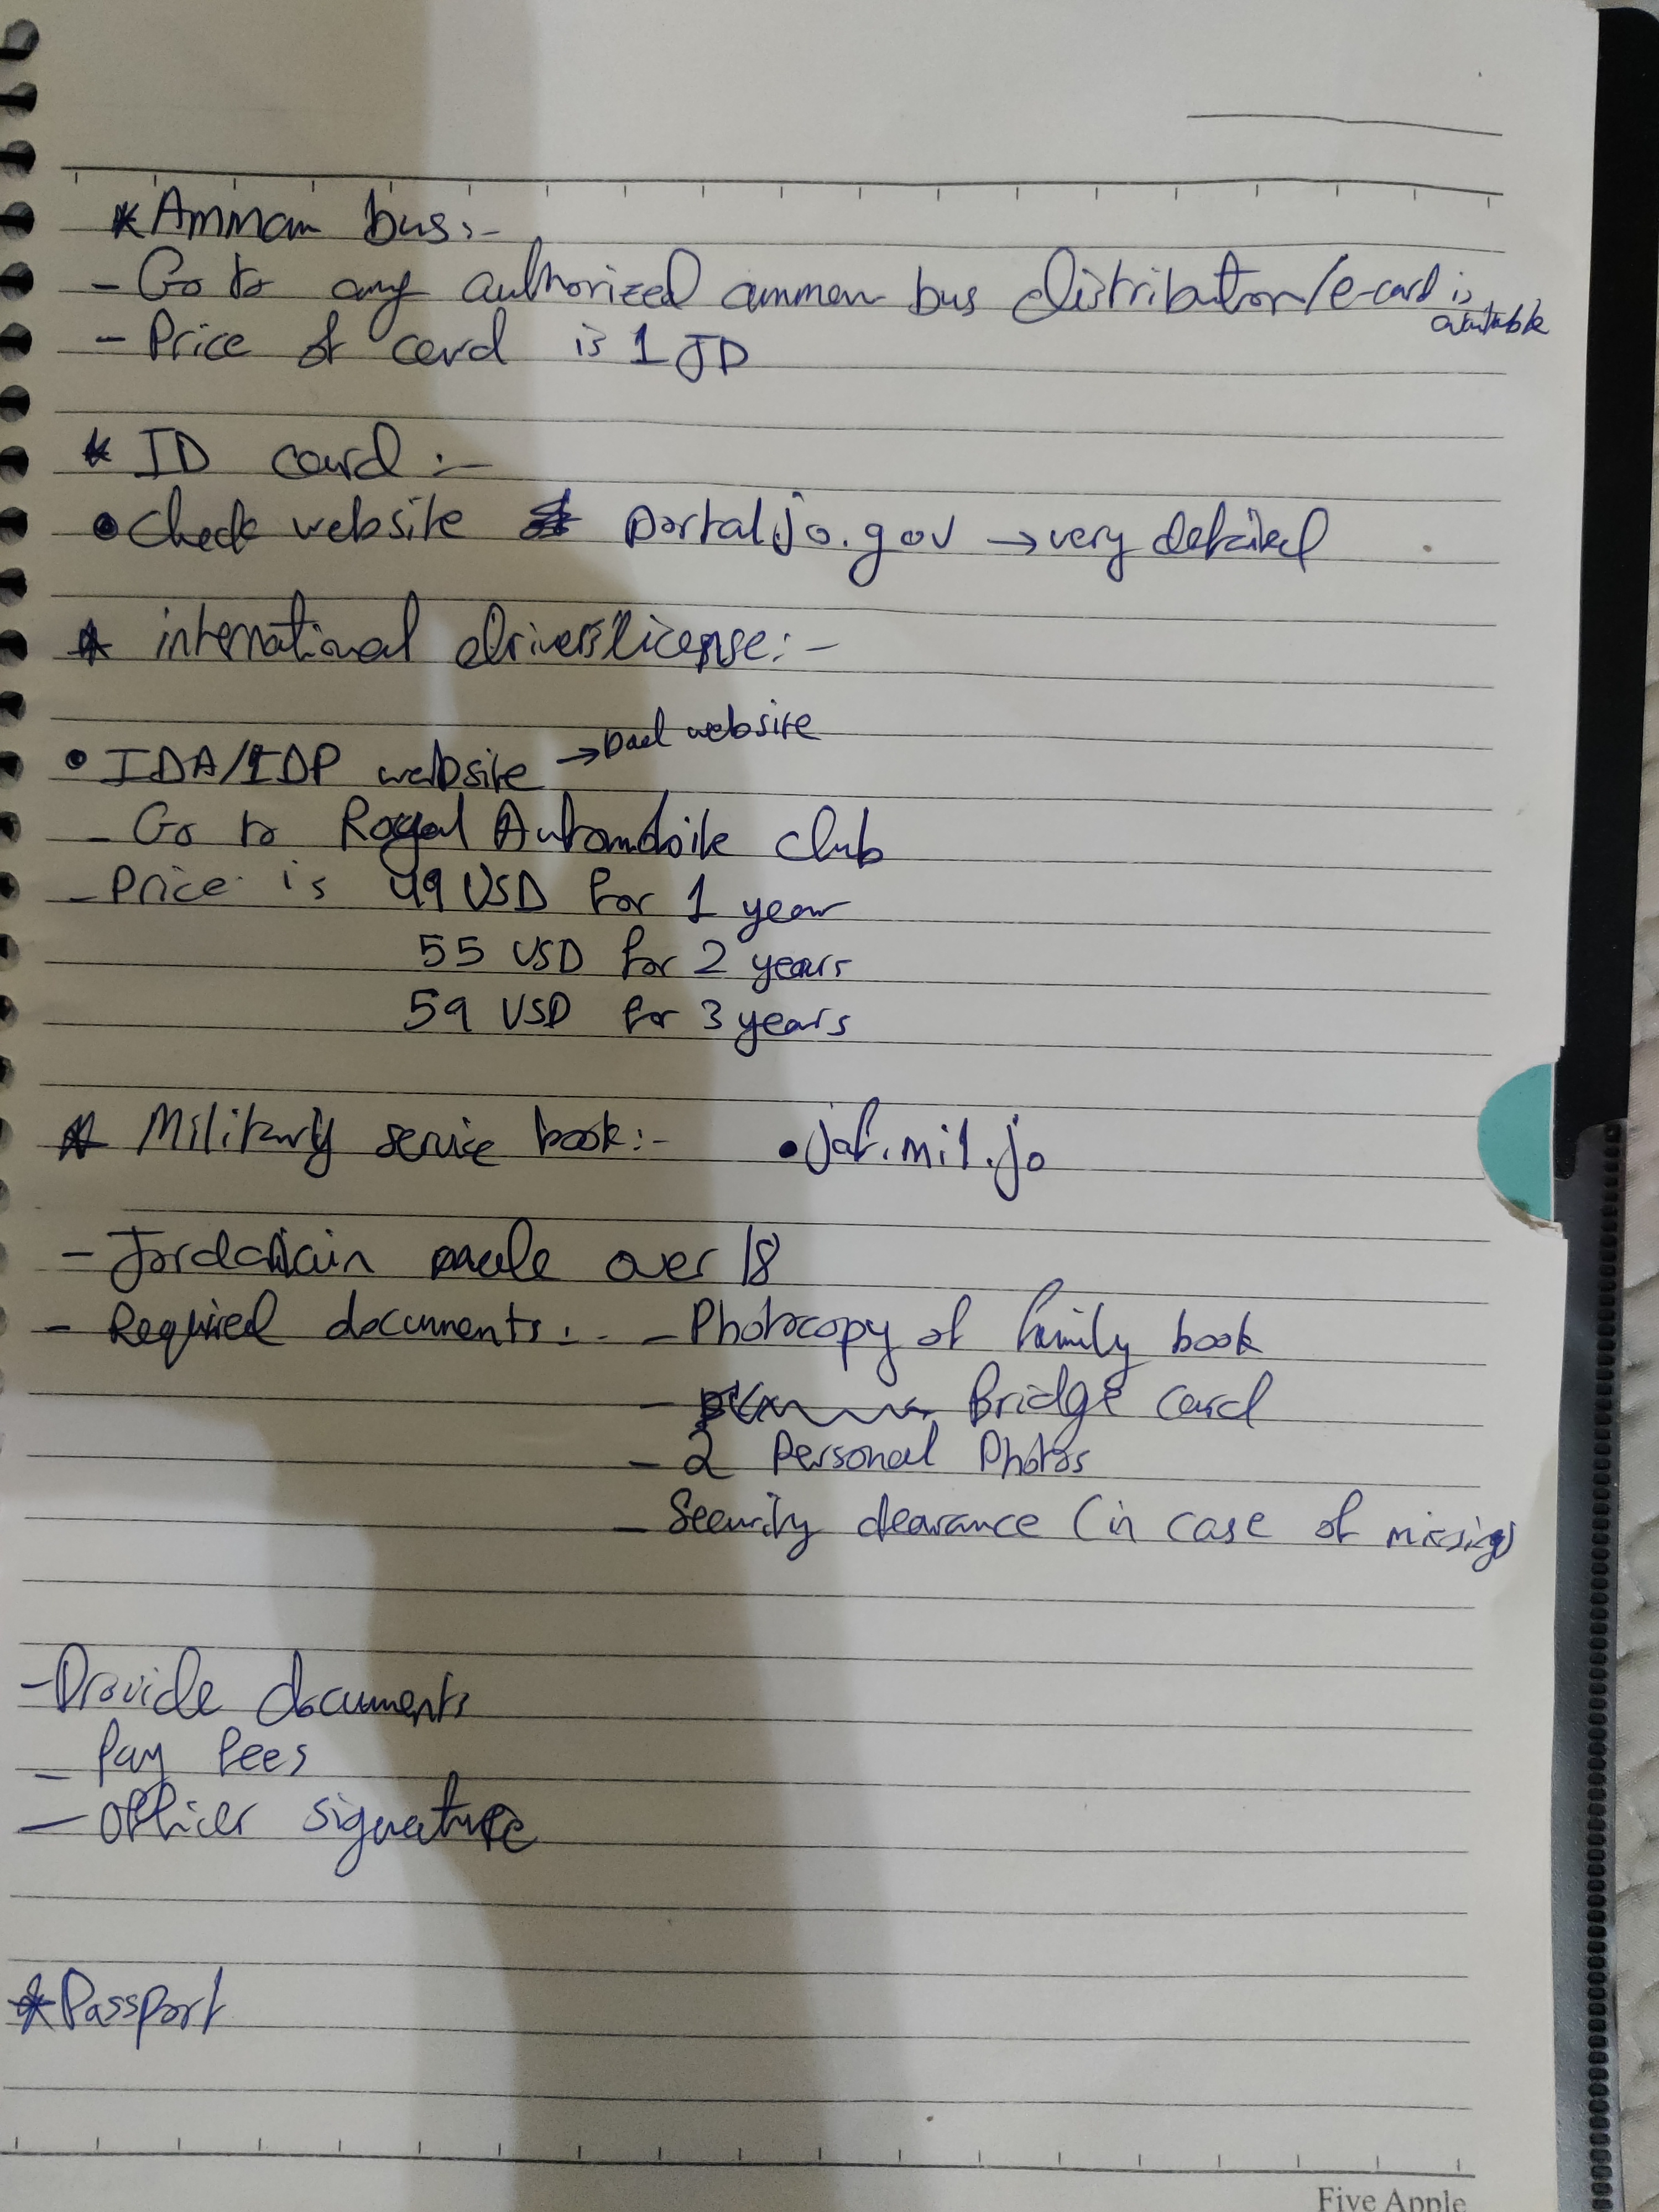 * Amman bus:-
- Go to any authorized amman bus distributor/e-card is available
- Price of card is 1 JD
* ID card :-
• Check website portal.jo.gov → very detailed
* international driver's license:-
• IDA/IDP website → bad website
- Go to Royal Automobile club
- Price is 49 USD for 1 year
55 USD for 2 years
59 USD for 3 years
* Military service book:- • jaf.mil.jo
- Jordanian male over 18
- Required documents: - Photocopy of family book
- Bridge card
- 2 Personal Photos
- Security clearance (in case of missing)
- Provide documents
- Pay fees
- Officer signature
* Passport
Five Apple